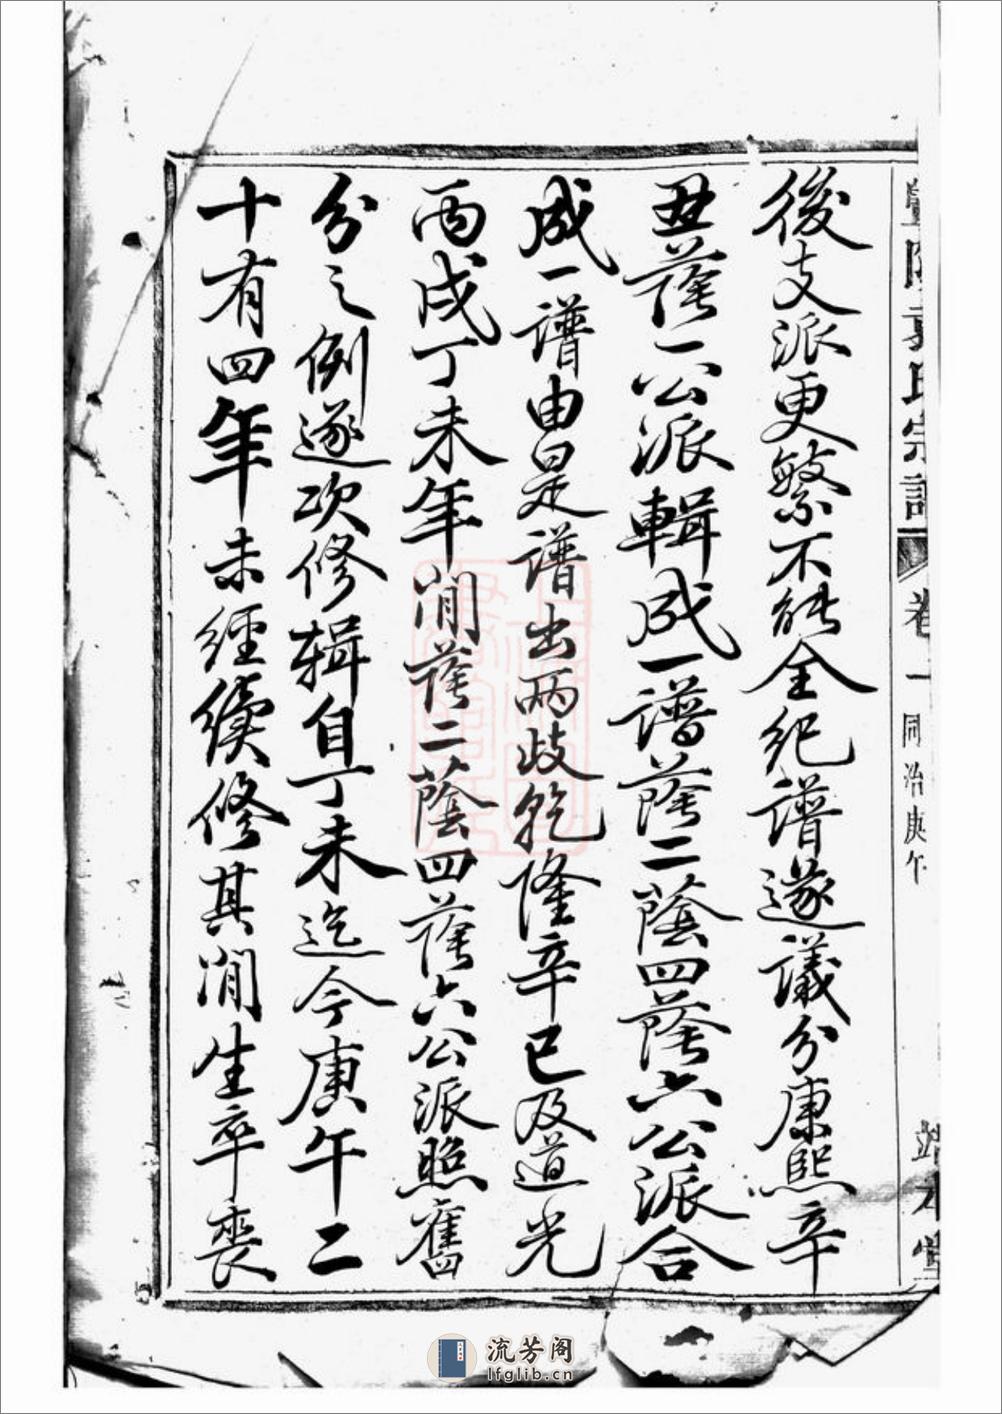 後支派更繁不能全紀譜遂議分康熙辛
丑蔭一公派輯成一譜蔭二蔭四蔭六公派合
成一譜由是譜出兩歧乾隆辛巳及道光
丙戌丁未年間蔭二蔭四蔭六公派照舊
分之例遂次修輯自丁未迄今庚午二
十有四年未經續修其間生卒喪
氏宗譜
卷一
同治庚午
本堂
流芳阁
lfglib.cn